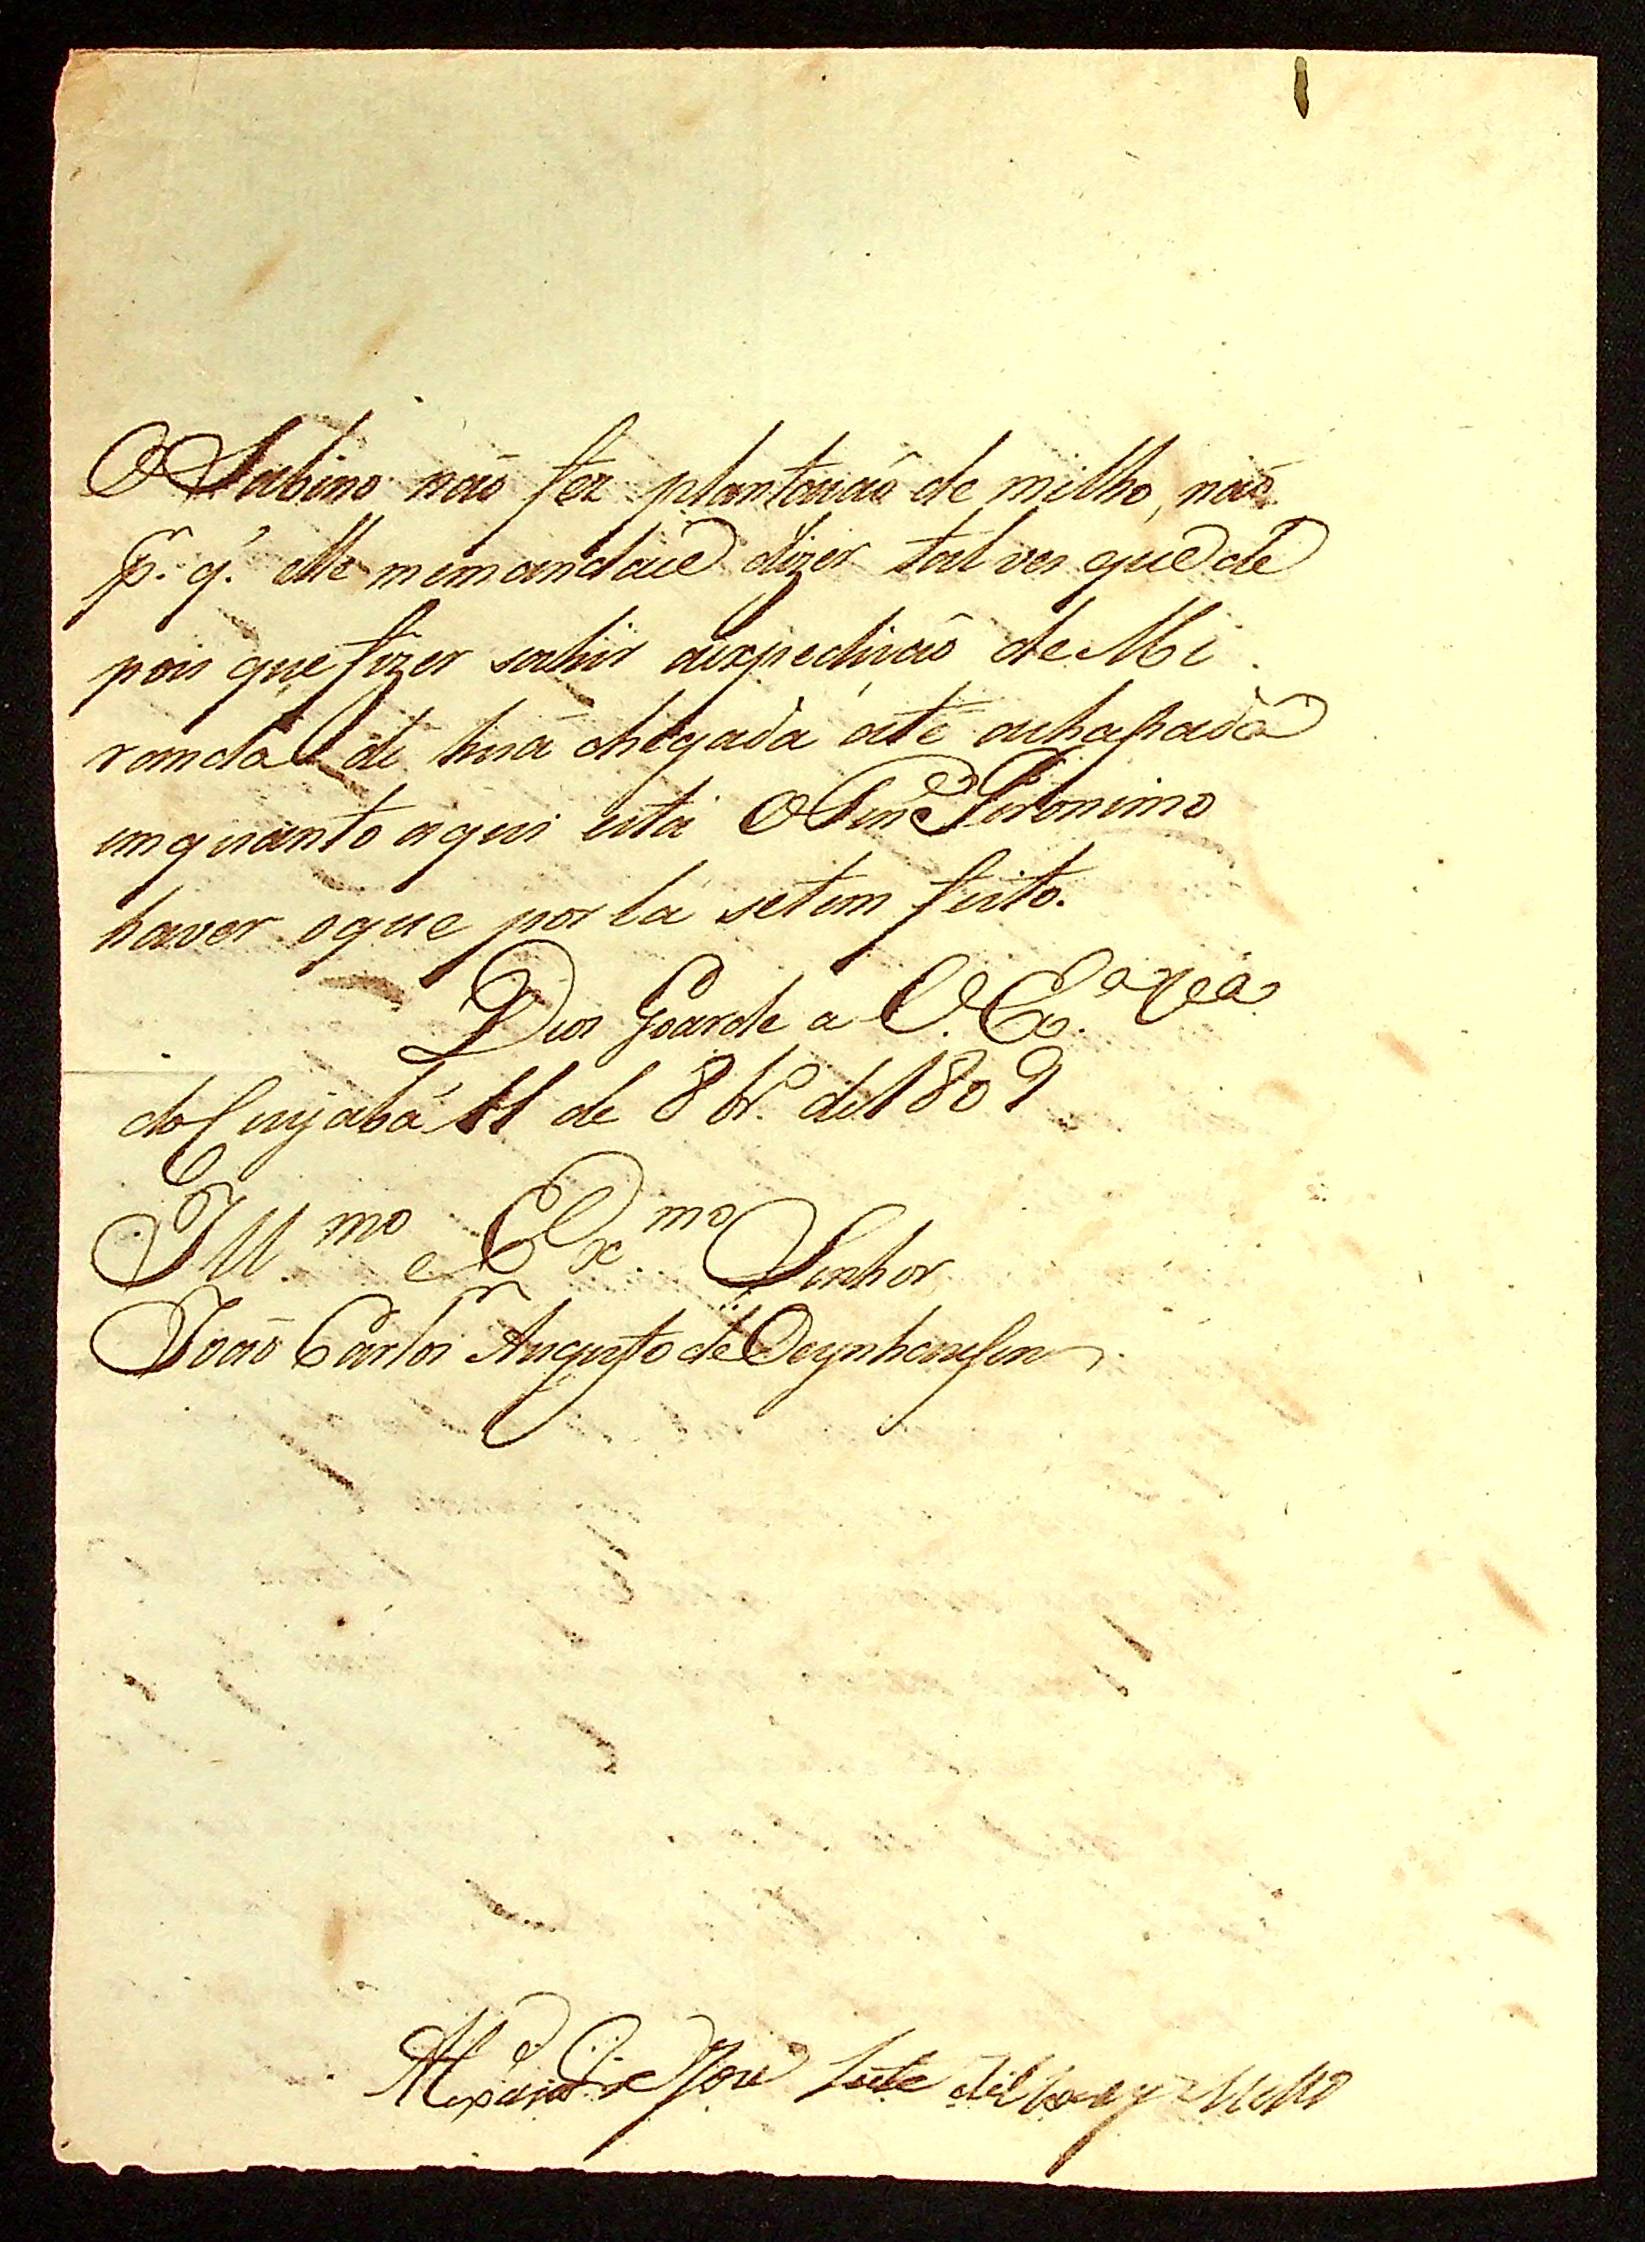 O Sabino não fez plantação de milho, não
p.r q.' elle memandace dizer talves que de
pois que fizer sahir aexpedição de Mi
randa de huã chegada até achapada
emquanto aqui está O Ten.e Jeronimo
haver oque por lá setem feito.
Deos Goarde a V. Ex.a
do Cuyabá 11 de 8br.o de 1809
Ill.mo e Ex.mo Senhor
João Carlos Augusto de Oeynhausen
Alexandre José Leite de Mello